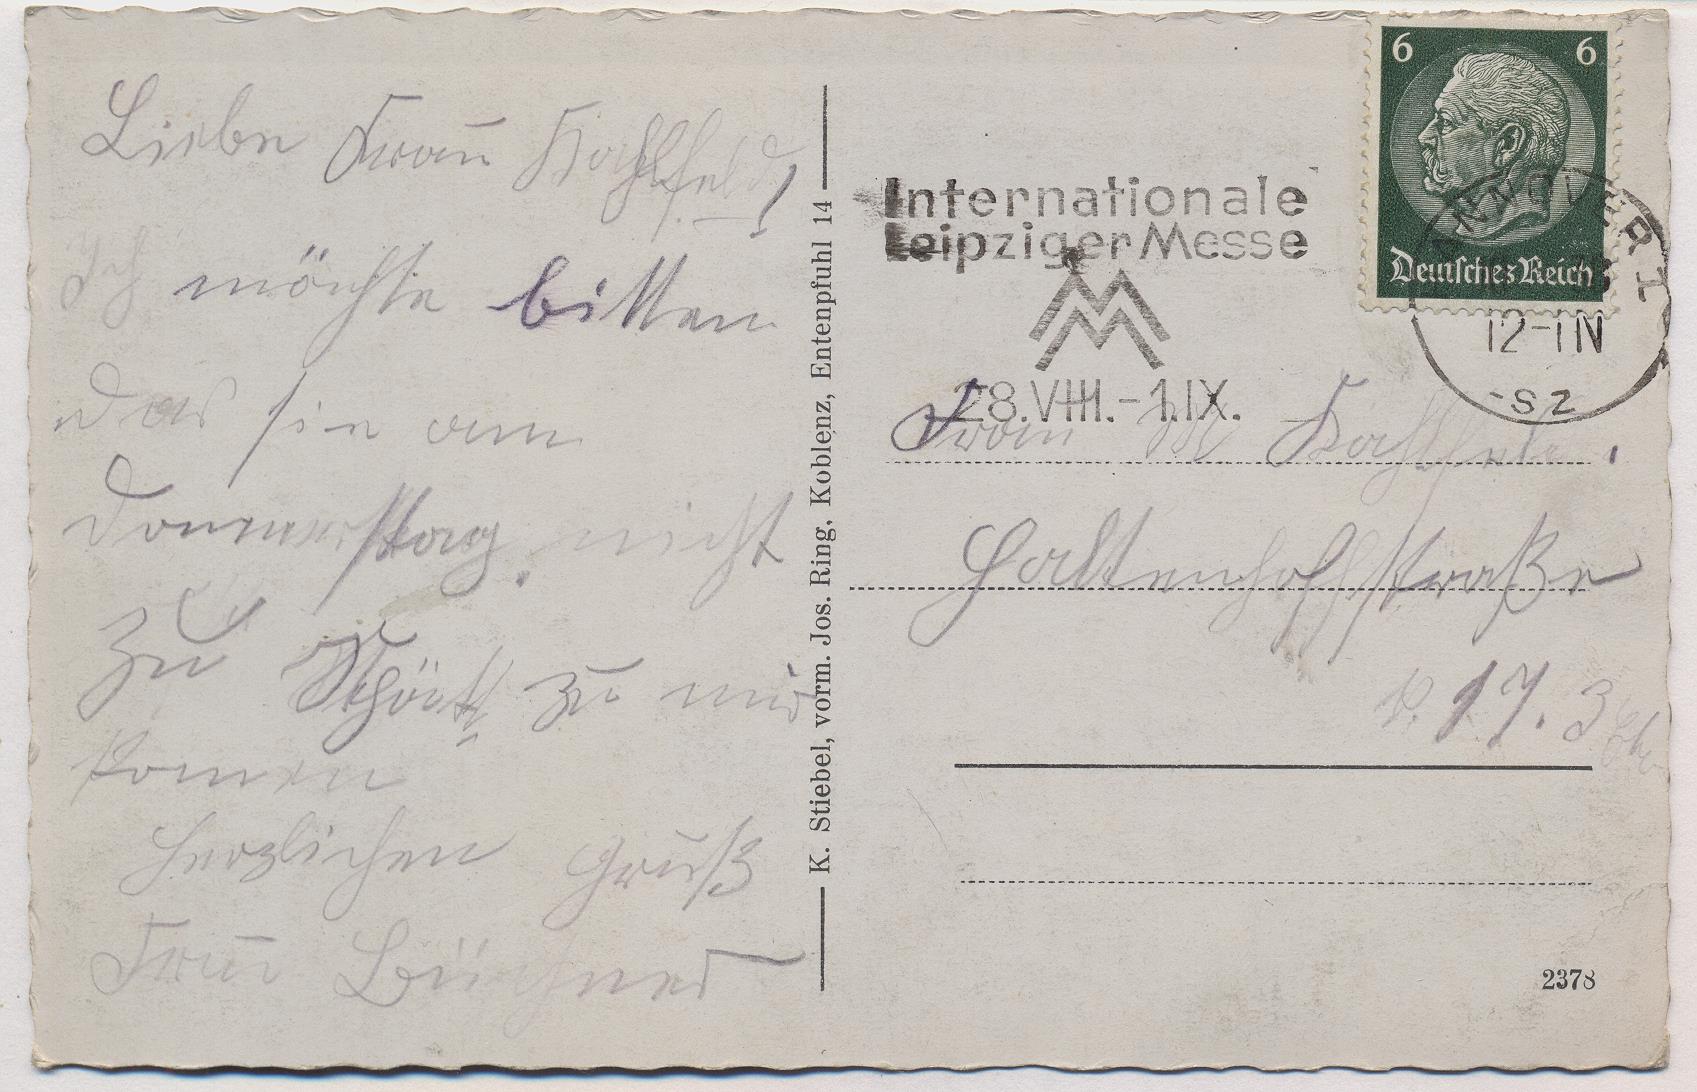 Liebe Frau Kohlfeld!
Ich möchte bitten
das sie am
Donnerstag nicht
zu zu mir
komen
Herzlichen Gruß
Frau Büchner
K. Stiebel, vorm. Jos. Ring, Koblenz, Entenpfuhl 14
Internationale
Leipziger Messe
MM
28.VIII.-1.IX.
6 6
Deutsches Reich
HANNOVER 1
12-1 N
-SZ
Frau M Kohlfeld.
Haltenhoffstraße
17. 3
2378